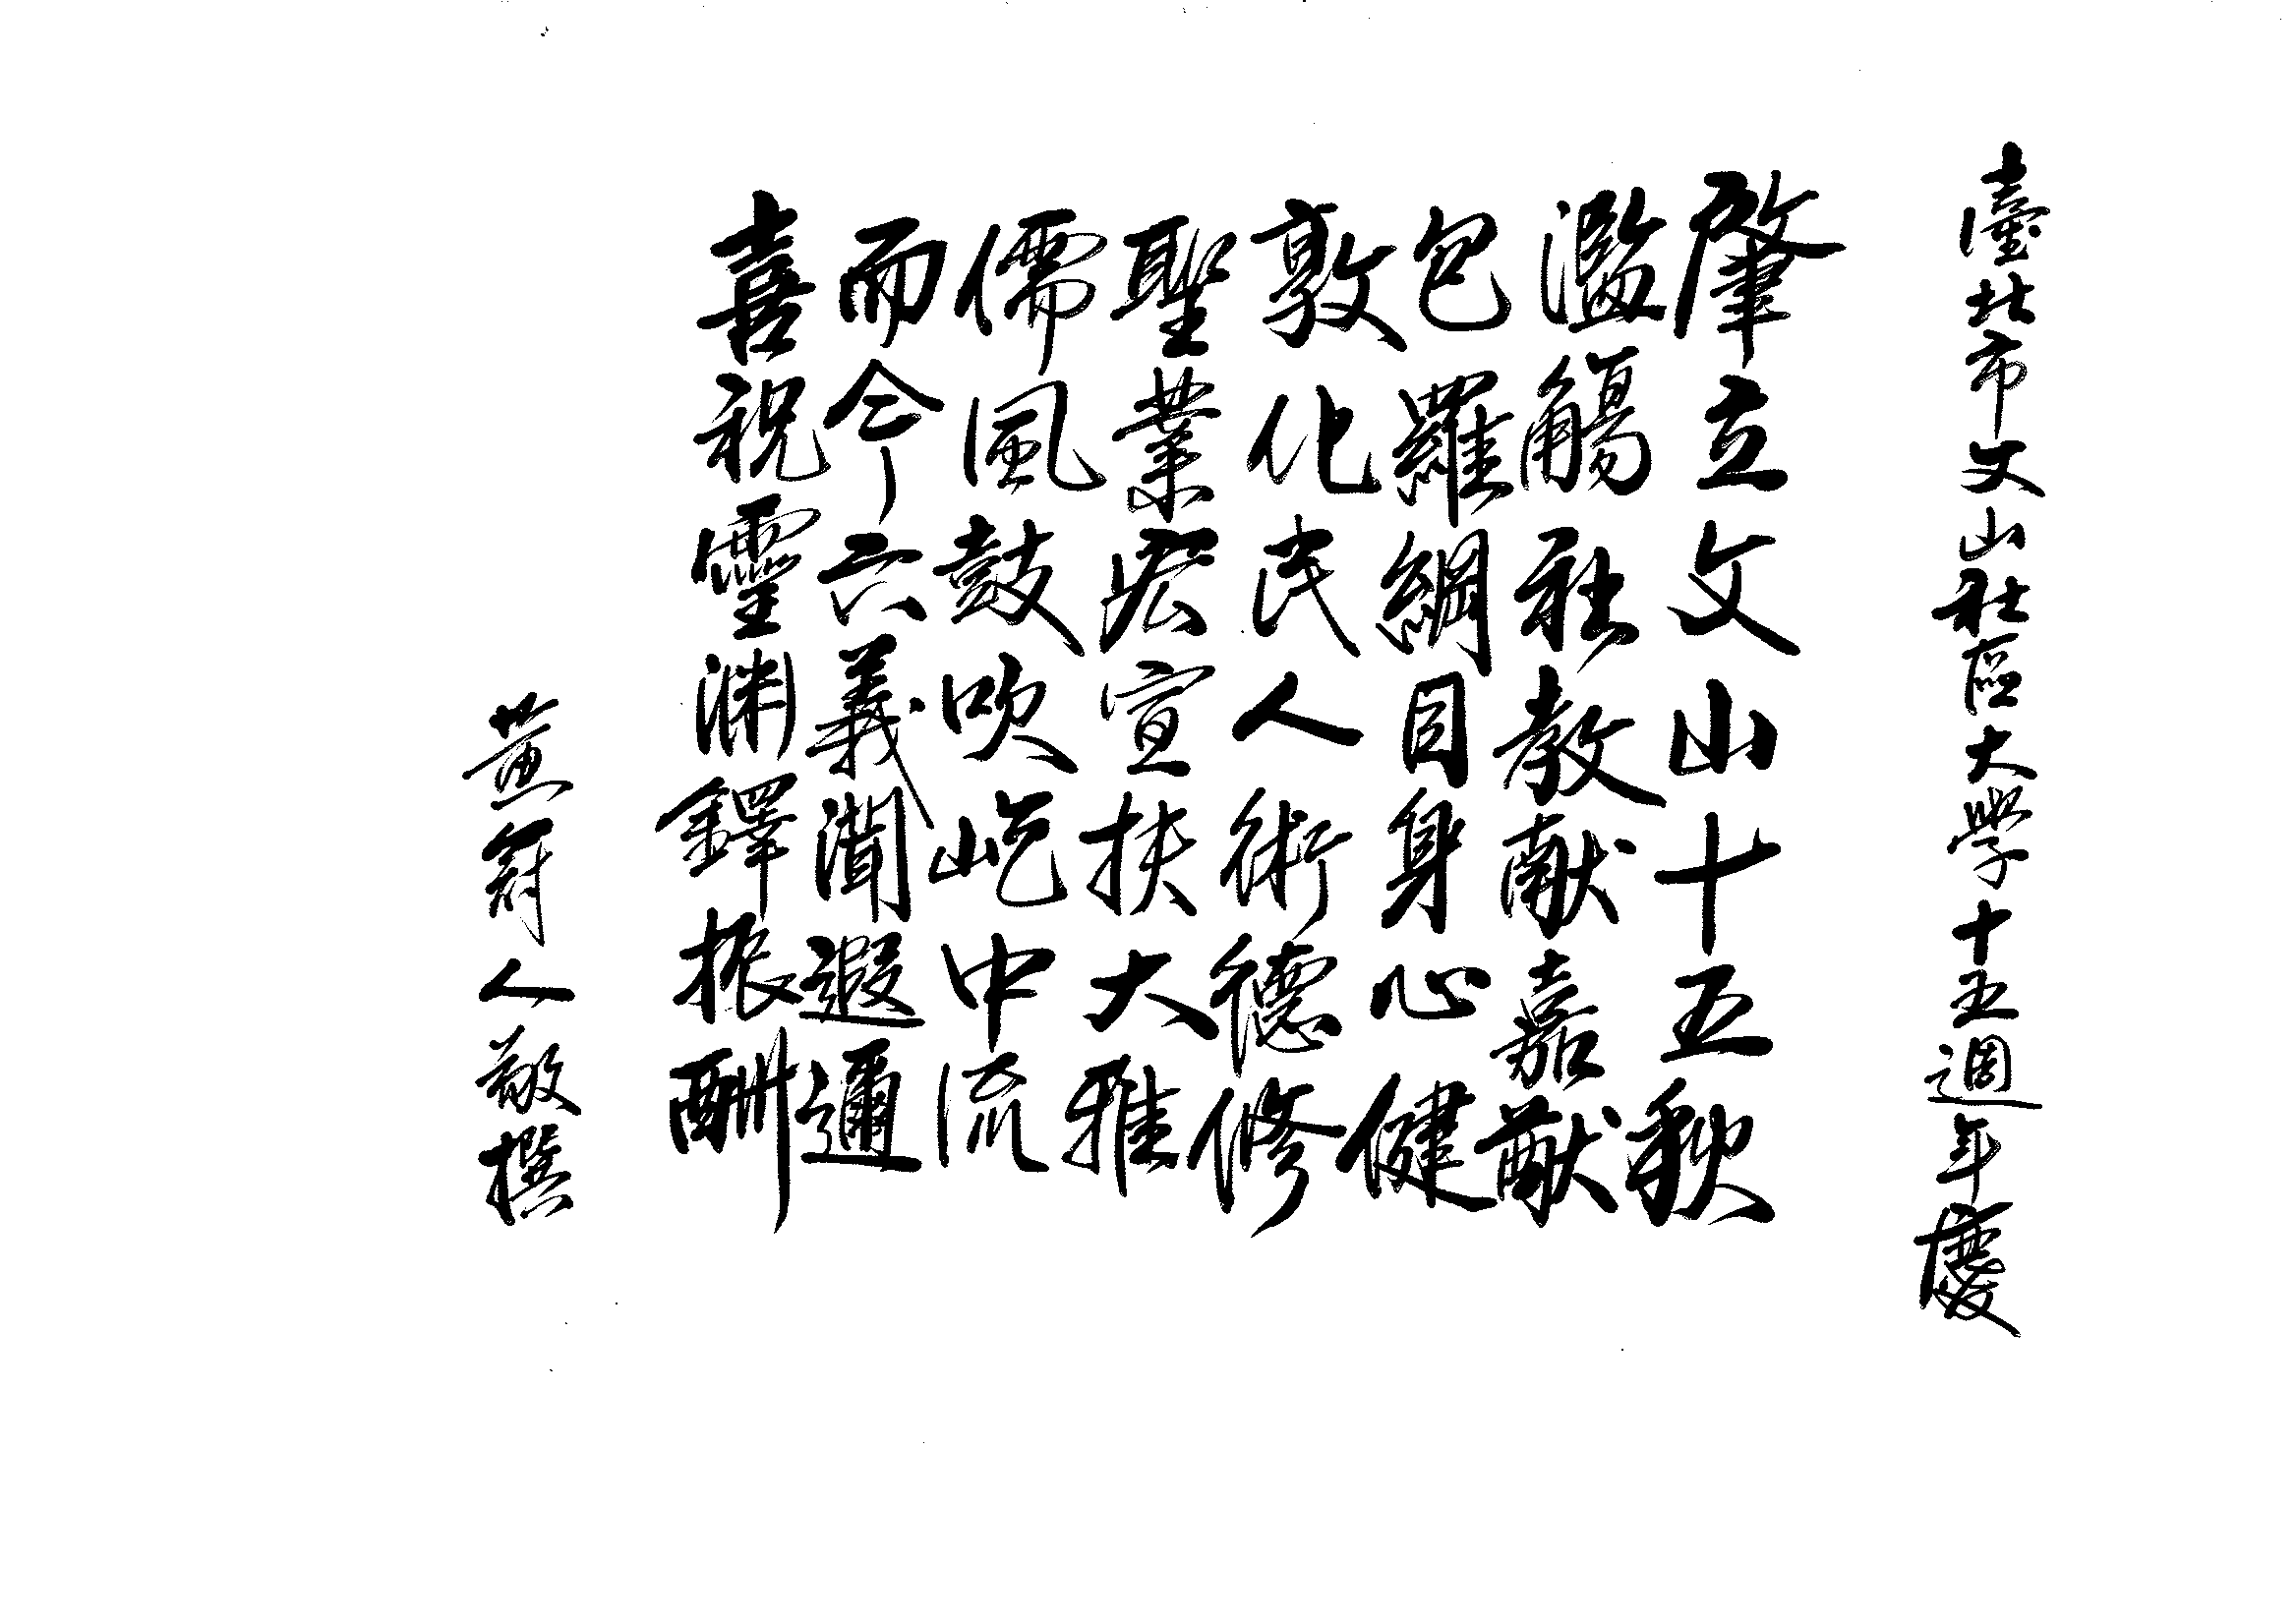 臺北市文山社區大學十五週年慶
肇立文山十五秋
濫觴社教獻嘉猷
包羅綱目身心健
敦化民人術德修
聖業宏宣扶大雅
儒風鼓吹屹中流
而今六義聞遐邇
喜祝靈淵鐸振酬
黃冠人敬撰